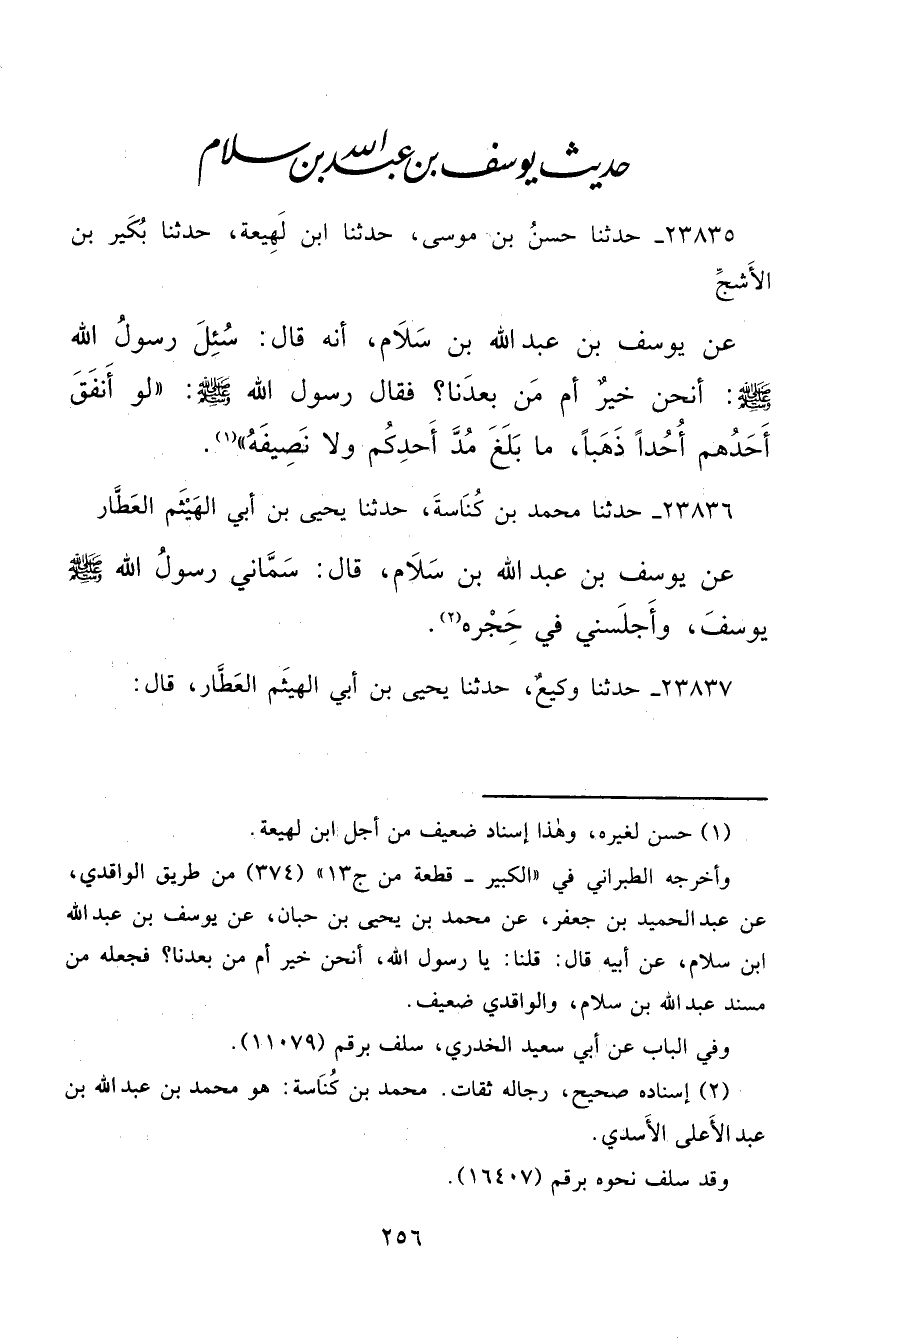 حديث يوسف بن عبد الله بن سلام
٢٣٨٣٥ـ حدثنا حسنُ بن موسى، حدثنا ابن لَهِيعة، حدثنا بُكَير بن
الأَشجِّ
عن يوسف بن عبد الله بن سَلَام، أنه قال: سُئِلَ رسولُ الله
ﷺ: أنحن خيرٌ أم مَن بعدَنا؟ فقال رسول الله ﷺ: «لو أَنفَقَ
أَحَدُهم أُحُداً ذَهَباً، ما بَلَغَ مُدَّ أَحدِكُم ولا نَصِيفَهُ»(١).
٢٣٨٣٦ـ حدثنا محمد بن كُنَاسةَ، حدثنا يحيى بن أبي الهَيْثَم العَطَّار
عن يوسف بن عبد الله بن سَلَام، قال: سَمَّاني رسولُ الله ﷺ
يوسفَ، وأَجلَسني في حَجْرِه(٢).
٢٣٨٣٧ـ حدثنا وكيعٌ، حدثنا يحيى بن أبي الهيثَم العَطَّار، قال:
(١) حسن لغيره، وهٰذا إسناد ضعيف من أجل ابن لهيعة.
وأخرجه الطبراني في «الكبير ـ قطعة من ج١٣» (٣٧٤) من طريق الواقدي،
عن عبد الحميد بن جعفر، عن محمد بن يحيى بن حبان، عن يوسف بن عبد الله
ابن سلام، عن أبيه قال: قلنا: يا رسول الله، أنحن خير أم من بعدنا؟ فجعله من
مسند عبد الله بن سلام، والواقدي ضعيف.
وفي الباب عن أبي سعيد الخدري، سلف برقم (١١٠٧٩).
(٢) إسناده صحيح، رجاله ثقات. محمد بن كُنَاسة: هو محمد بن عبد الله بن
عبد الأَعلى الأَسدي.
وقد سلف نحوه برقم (١٦٤٠٧).
٢٥٦